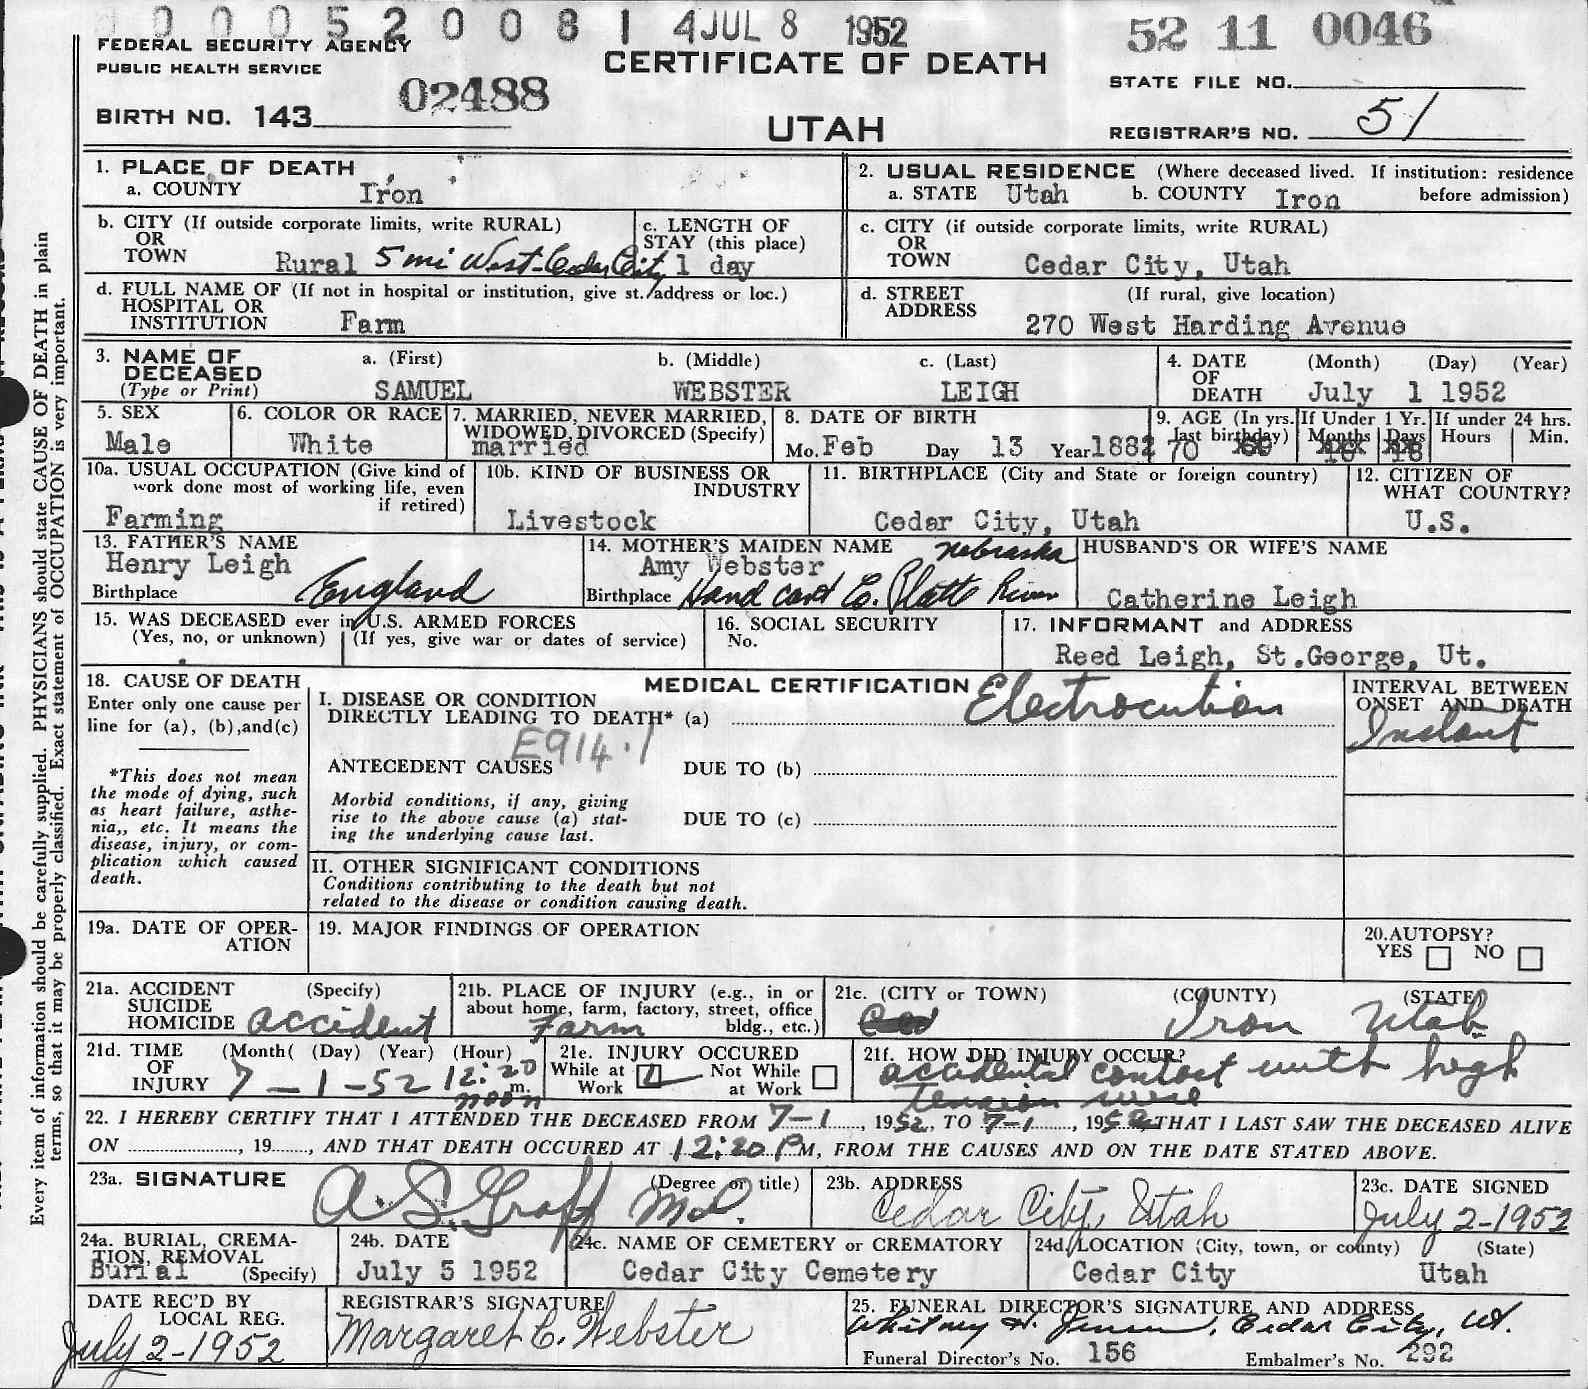 0 0 0 5 2 0 0 8 1 4 JUL 8 1952
52 11 0046
FEDERAL SECURITY AGENCY
PUBLIC HEALTH SERVICE
CERTIFICATE OF DEATH
STATE FILE NO.
02488
BIRTH NO. 143
UTAH
REGISTRAR'S NO. 51
1. PLACE OF DEATH
a. COUNTY Iron
2. USUAL RESIDENCE (Where deceased lived. If institution: residence before admission)
a. STATE Utah b. COUNTY Iron
b. CITY (If outside corporate limits, write RURAL)
OR
TOWN Rural 5 mi West-Cedar City
c. LENGTH OF
STAY (this place)
1 day
c. CITY (if outside corporate limits, write RURAL)
OR
TOWN Cedar City, Utah
d. FULL NAME OF (If not in hospital or institution, give st. address or loc.)
HOSPITAL OR
INSTITUTION Farm
d. STREET (If rural, give location)
ADDRESS 270 West Harding Avenue
3. NAME OF
DECEASED
(Type or Print)
a. (First) b. (Middle) c. (Last)
SAMUEL WEBSTER LEIGH
4. DATE (Month) (Day) (Year)
OF
DEATH July 1 1952
5. SEX
Male
6. COLOR OR RACE
White
7. MARRIED, NEVER MARRIED,
WIDOWED, DIVORCED (Specify)
married
8. DATE OF BIRTH
Mo. Feb Day 13 Year 1882
9. AGE (In yrs.
last birthday)
70
If Under 1 Yr.
Months Days
If under 24 hrs.
Hours Min.
10a. USUAL OCCUPATION (Give kind of
work done most of working life, even
if retired)
Farming
10b. KIND OF BUSINESS OR
INDUSTRY
Livestock
11. BIRTHPLACE (City and State or foreign country)
Cedar City, Utah
12. CITIZEN OF
WHAT COUNTRY?
U.S.
13. FATHER'S NAME
Henry Leigh
Birthplace England
14. MOTHER'S MAIDEN NAME Nebraska
Amy Webster
Birthplace Hand cart C. Platte River
HUSBAND'S OR WIFE'S NAME
Catherine Leigh
15. WAS DECEASED ever in U.S. ARMED FORCES
(Yes, no, or unknown) (If yes, give war or dates of service)
16. SOCIAL SECURITY
No.
17. INFORMANT and ADDRESS
Reed Leigh, St.George, Ut.
18. CAUSE OF DEATH
Enter only one cause per
line for (a), (b),and(c)
*This does not mean
the mode of dying, such
as heart failure, asthe-
nia,, etc. It means the
disease, injury, or com-
plication which caused
death.
MEDICAL CERTIFICATION
I. DISEASE OR CONDITION
DIRECTLY LEADING TO DEATH* (a) Electrocution
E914.1
ANTECEDENT CAUSES DUE TO (b)
Morbid conditions, if any, giving
rise to the above cause (a) stat-
ing the underlying cause last.
DUE TO (c)
INTERVAL BETWEEN
ONSET AND DEATH
Instant
II. OTHER SIGNIFICANT CONDITIONS
Conditions contributing to the death but not
related to the disease or condition causing death.
19a. DATE OF OPER-
ATION
19. MAJOR FINDINGS OF OPERATION
20.AUTOPSY?
YES NO
21a. ACCIDENT (Specify)
SUICIDE
HOMICIDE accident
21b. PLACE OF INJURY (e.g., in or
about home, farm, factory, street, office
bldg., etc.)
Farm
21c. (CITY or TOWN) (COUNTY) (STATE)
Iron Utah
21d. TIME (Month( (Day) (Year) (Hour)
OF
INJURY 7-1-52 12:20 m.
noon
21e. INJURY OCCURED
While at Work Not While at Work
21f. HOW DID INJURY OCCUR?
accidental contact with high
tension wire
22. I HEREBY CERTIFY THAT I ATTENDED THE DECEASED FROM 7-1, 1952, TO 7-1, 1952 THAT I LAST SAW THE DECEASED ALIVE
ON, 19, AND THAT DEATH OCCURED AT 12:20 P M, FROM THE CAUSES AND ON THE DATE STATED ABOVE.
23a. SIGNATURE (Degree or title)
A. S. Graff M.D.
23b. ADDRESS
Cedar City, Utah
23c. DATE SIGNED
July 2-1952
24a. BURIAL, CREMA-
TION, REMOVAL
Burial (Specify)
24b. DATE
July 5 1952
24c. NAME OF CEMETERY or CREMATORY
Cedar City Cemetery
24d. LOCATION (City, town, or county) (State)
Cedar City Utah
DATE REC'D BY
LOCAL REG.
July 2-1952
REGISTRAR'S SIGNATURE
Margaret C. Webster
25. FUNERAL DIRECTOR'S SIGNATURE AND ADDRESS
Whitney H. Jensen, Cedar City, Ut.
Funeral Director's No. 156 Embalmer's No. 292
Every item of information should be carefully supplied. PHYSICIANS should state CAUSE OF DEATH in plain
terms, so that it may be properly classified. Exact statement of OCCUPATION is very important.